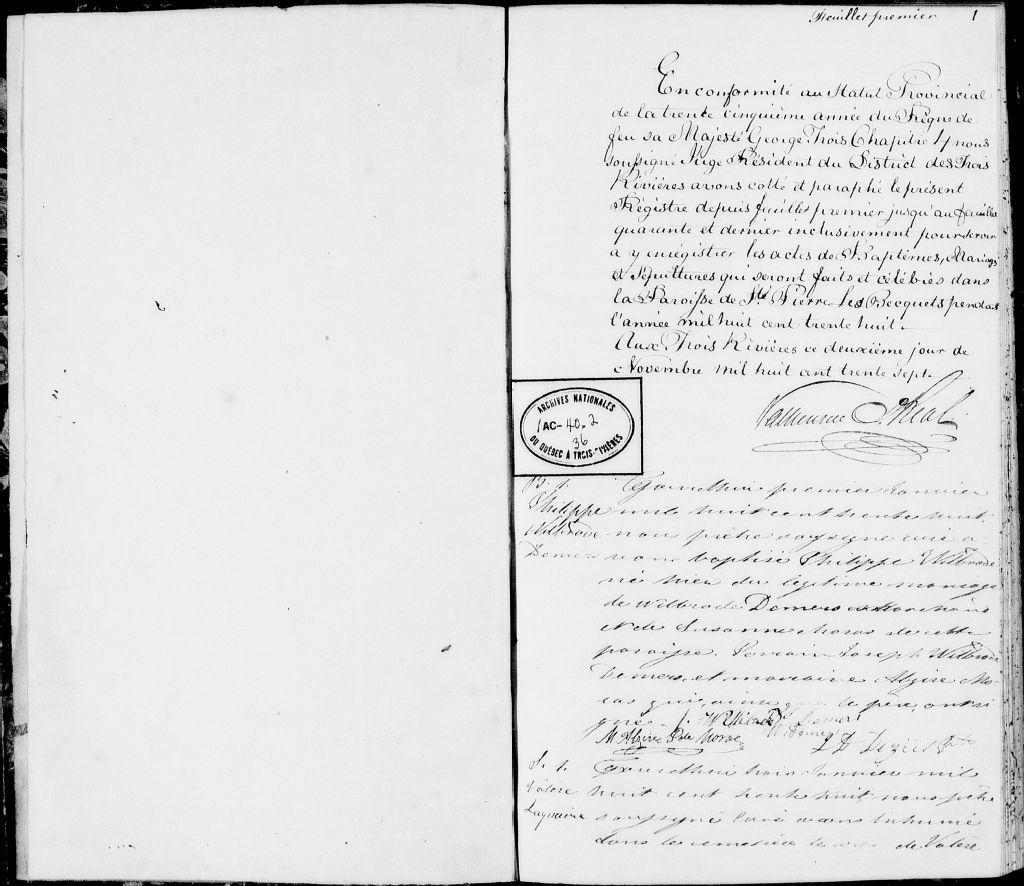 Feuillet premier 1
En conformité au Statut Provincial
de la trente cinquième année du Règne de
feu sa Majesté George Trois Chapitre 4 nous
soussigné Juge Résident du District des Trois
Rivières avons cotté et paraphé le présent
Régistre depuis feuillet premier jusqu'au feuillet
quarante et dernier inclusivement pour servir
a y enrégistrer les actes de Baptêmes, Mariages
et Sépultures qui seront faits et célébrés dans
la Paroisse de St. Pierre les Becquets pendant
l'année mil huit cent trente huit.
Aux Trois Rivières ce deuxième jour de
Novembre mil huit cent trente sept.
ARCHIVES NATIONALES
1AC-40.2
36
DU QUÉBEC À TROIS-RIVIÈRES
B. 1.
Philippe
Wilbrode
Demers
Aujourdhui premier Janvier
mil huit cent trente huit
nous prêtre soussigné curé a
vons baptisé Philippe Wilbrode
né hier du légitime mariage
de Wilbrode Demers Marchand
et de Susanne Moras de cette
paroisse. Parrain Joseph Wilbrode
Demers, et marraine Alzire Mo-
ras qui, ainsi que le père, ont si
gné
S. 1.
Valère
Aujourdhui trois Janvier mil
huit cent trente huit nous prêtre
soussigné Curé avons inhumé
dans le cimetière le corps de Valère